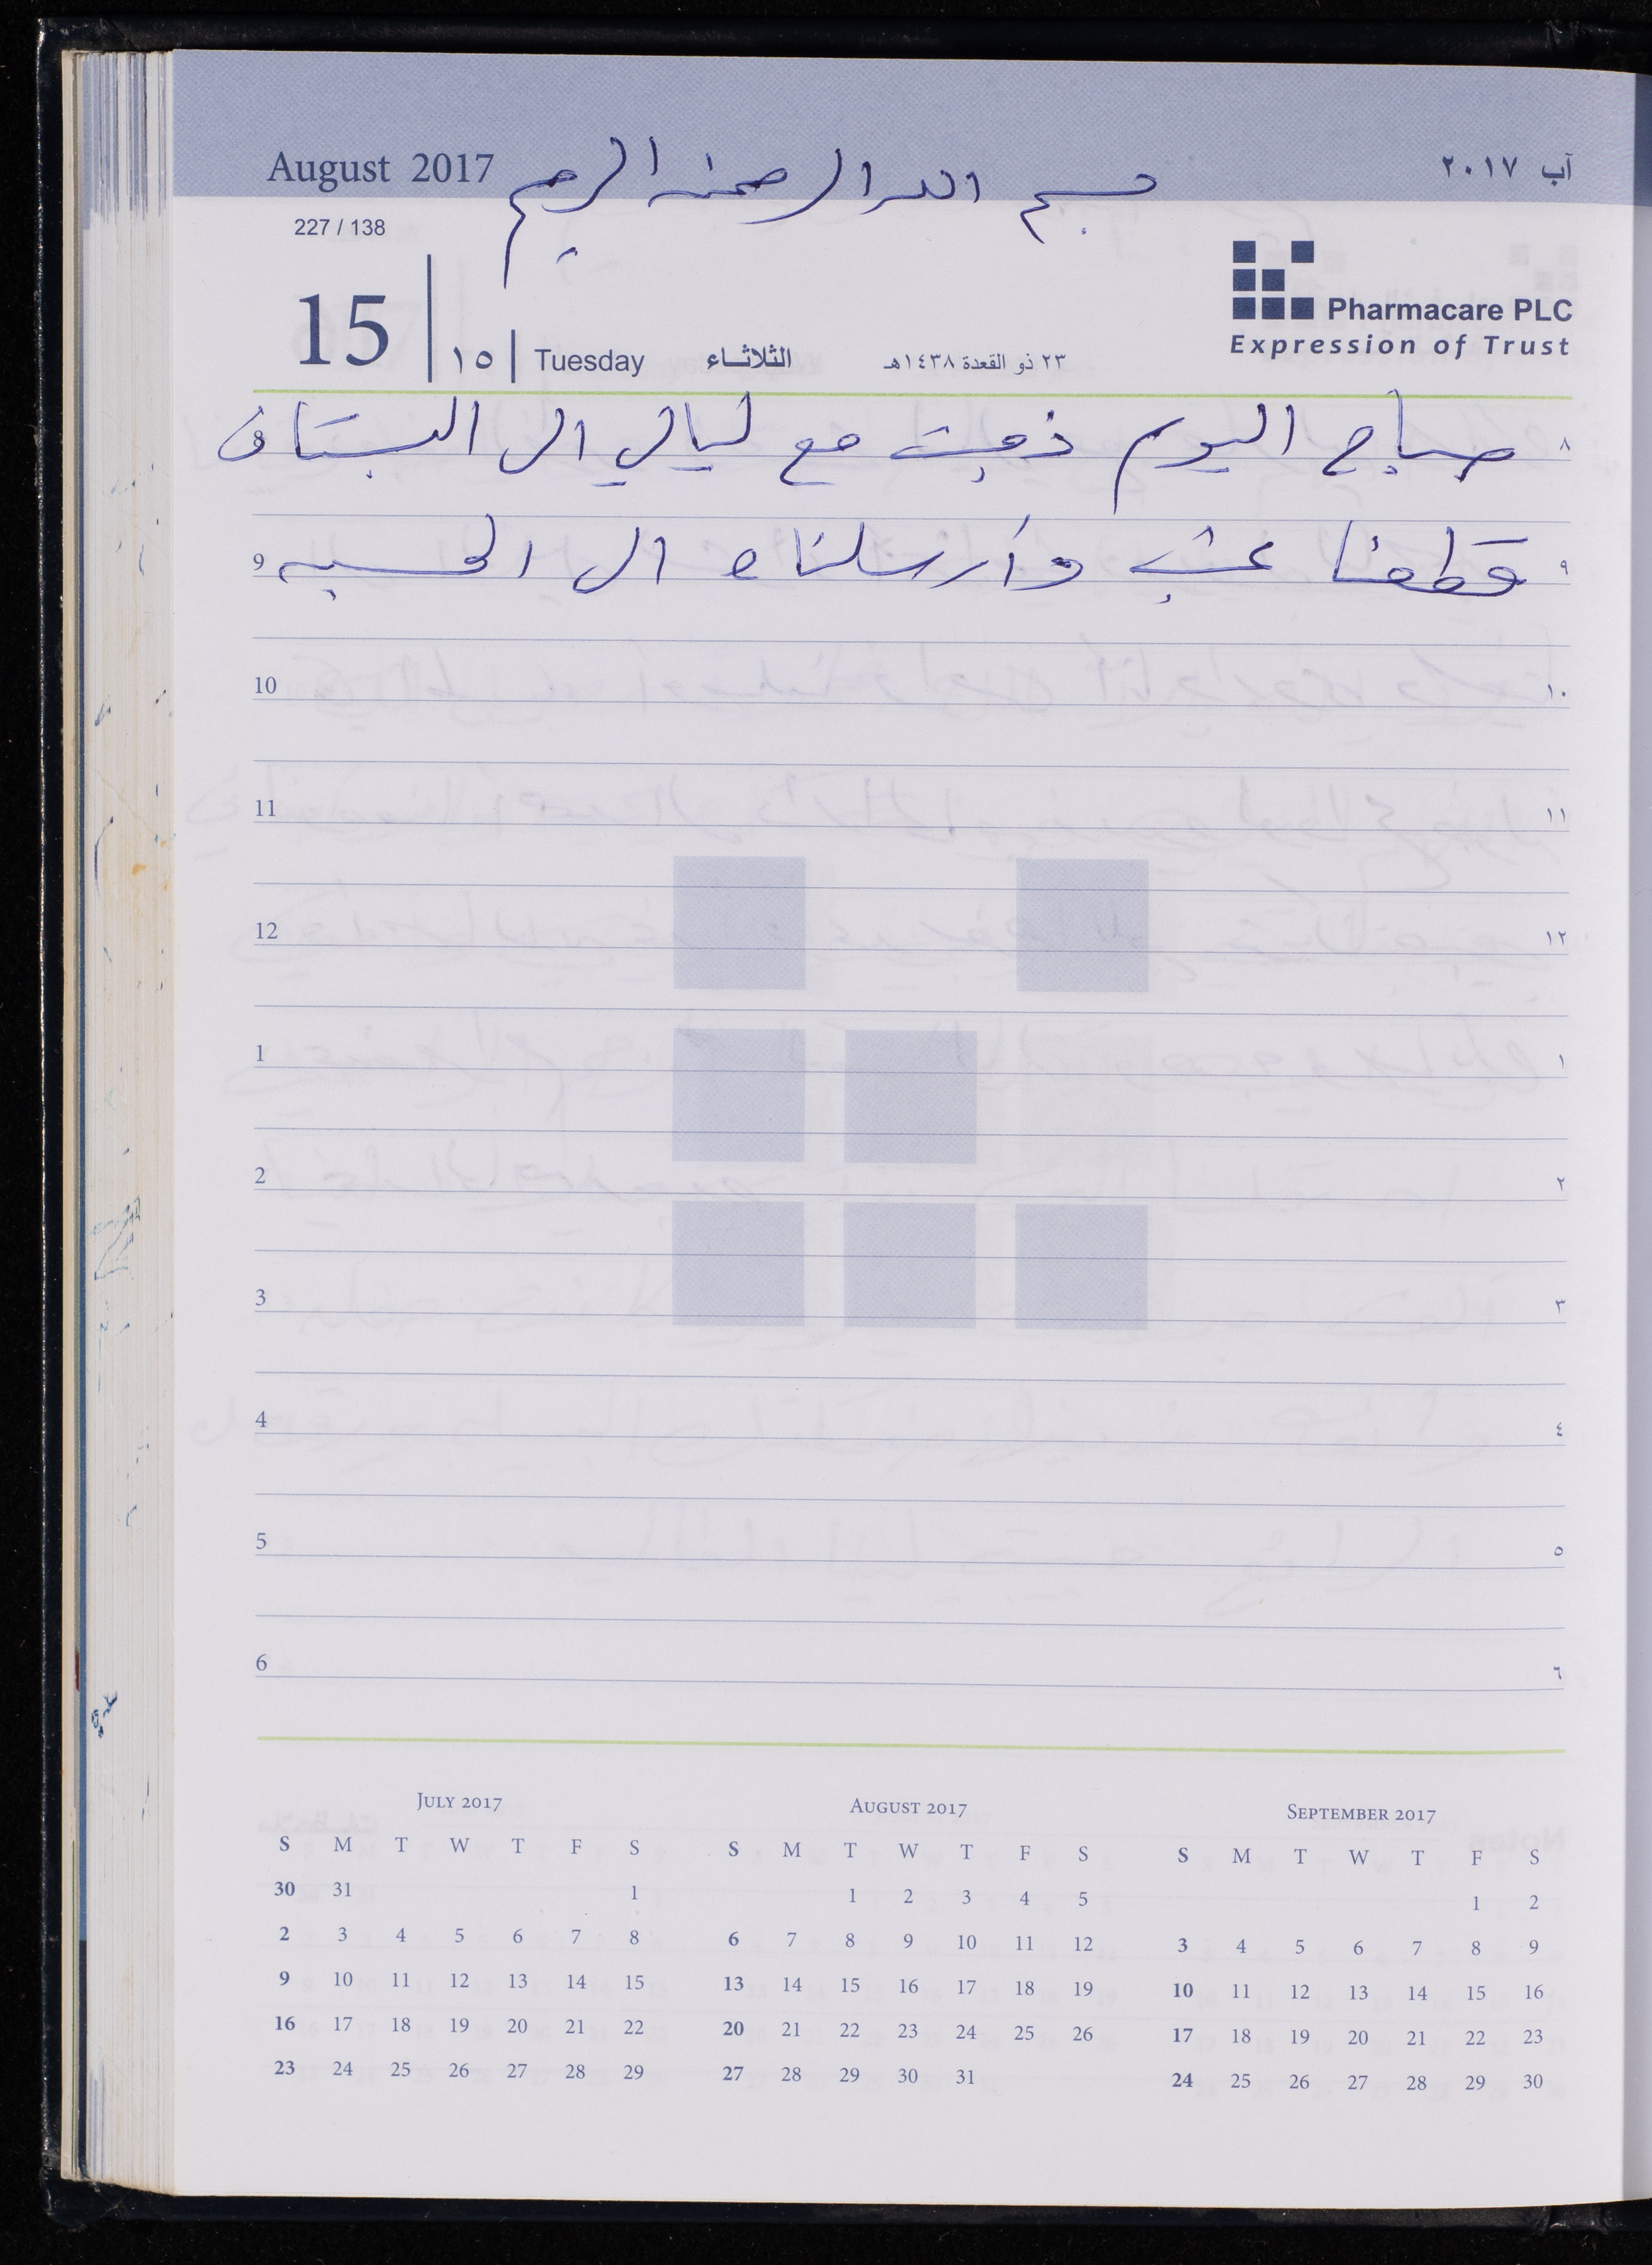 August 2017 بسم الله الرحمن الرحيم آب ٢٠١٧
227 / 138
15 ١٥ Tuesday الثلاثاء ٢٣ ذو القعدة ١٤٣٨هـ
Pharmacare PLC
Expression of Trust
8 صباح اليوم ذهبت مع ليالي الى البستان ٨
9 قطفنا عنب وأرسلناه الى الحسبه ٩
10 ١٠
11 ١١
12 ١٢
1 ١
2 ٢
3 ٣
4 ٤
5 ٥
6 ٦
July 2017
S M T W T F S
30 31 1
2 3 4 5 6 7 8
9 10 11 12 13 14 15
16 17 18 19 20 21 22
23 24 25 26 27 28 29
August 2017
S M T W T F S
1 2 3 4 5
6 7 8 9 10 11 12
13 14 15 16 17 18 19
20 21 22 23 24 25 26
27 28 29 30 31
September 2017
S M T W T F S
1 2
3 4 5 6 7 8 9
10 11 12 13 14 15 16
17 18 19 20 21 22 23
24 25 26 27 28 29 30